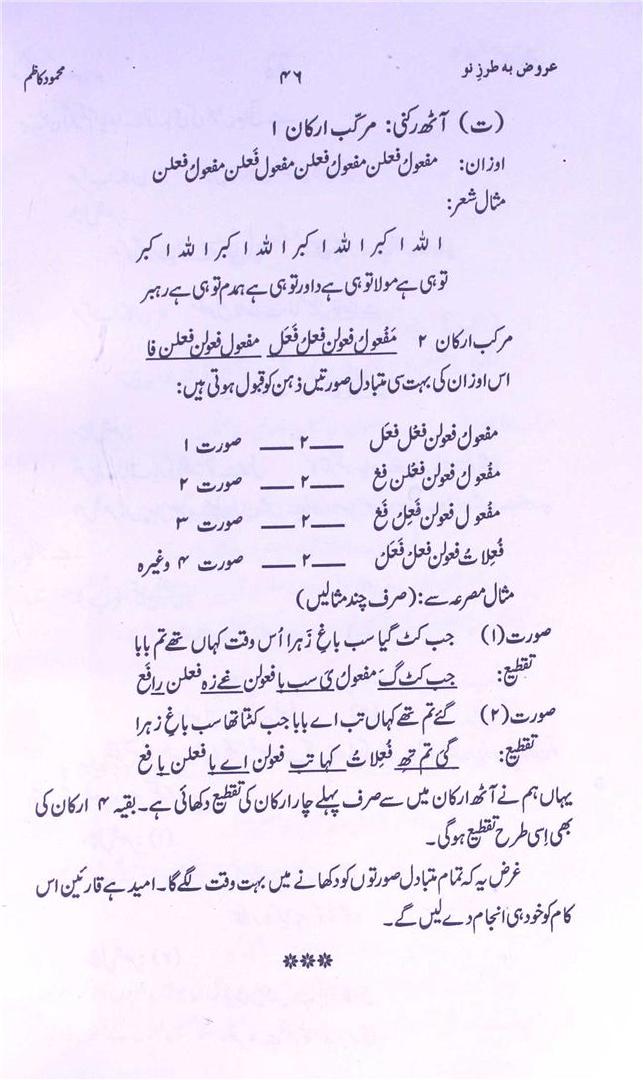 عروض بہ طرزِ نو ۴۶ محمود کاظم
(ت) آٹھ رکنی: مرکّب ارکان ۱
اوزان: مفعولُ فعلن مفعولُ فعلن مفعولُ فَعلن مفعولُ فعلن
مثال شعر:
اللہ اکبر اللہ اکبر اللہ اکبر اللہ اکبر
تو ہی ہے مولا تو ہی ہے داور تو ہی ہے ہمدم تو ہی ہے رہبر
مرکب ارکان ۲ مَفْعولُ فعولن فعلُ فَعَل مفعول فعولن فعلن فا
اس اوزان کی بہت سی متبادل صورتیں ذہن کو قبول ہوتی ہیں:
مفعولُ فعولن فعْلُ فَعَل ——۲—— صورت ۱
مفْعولُ فعولن فعْلن فعْ ——۲—— صورت ۲
مفْعولُ فعولن فَعِلن فَعْ ——۲—— صورت ۳
فَعِلاتُ فعولن فعلُ فَعَل ——۲—— صورت ۴ وغیرہ
مثال مصرعہ سے: (صرف چند مثالیں)
صورت (۱) جب کٹ گیا سب باغِ زَہرا اُس وقت کہاں تھے تم بابا
تقطیع: جب کٹ گَ مفعولُ یَ سب با فعولن غے زہ فعلن را فَع
صورت (۲) گئے تم تھے کہاں تب اے بابا جب کٹتا تھا سب باغِ زہرا
تقطیع: گئ تم تھِ فَعِلاتُ کہا تب فعولن اے با فعلن با فع
یہاں ہم نے آٹھ ارکان میں سے صرف پہلے چار ارکان کی تقطیع دکھائی ہے۔ بقیہ ۴ ارکان کی
بھی اِسی طرح تقطیع ہوگی۔
غرض یہ کہ تمام متبادل صورتوں کو دکھانے میں بہت وقت لگے گا۔ امید ہے قارئین اس
کام کو خود ہی انجام دے لیں گے۔
***